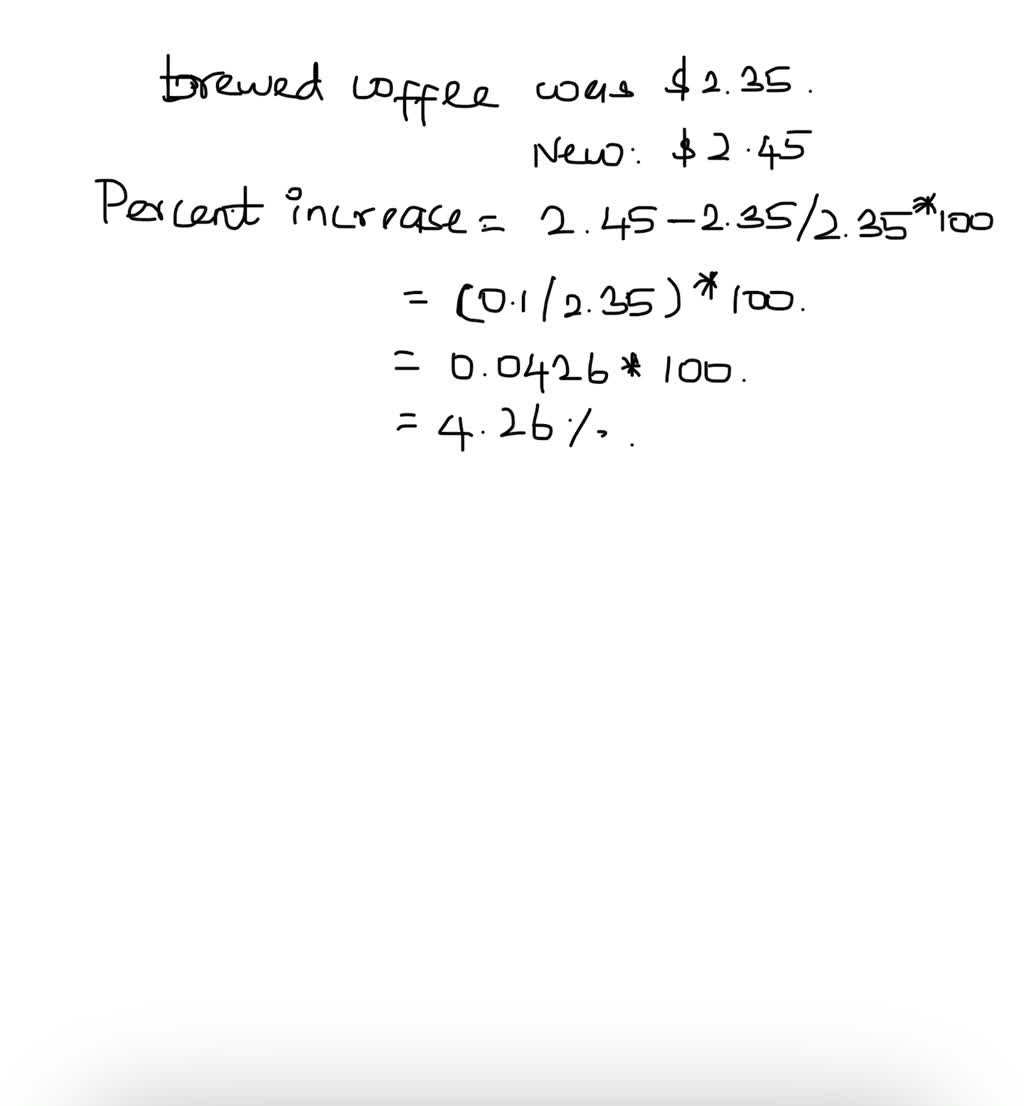 brewed coffee was $2.35.
New: $2.45
Percent increase = 2.45-2.35/2.35*100
= (0.1/2.35)*100.
= 0.0426*100.
= 4.26%.